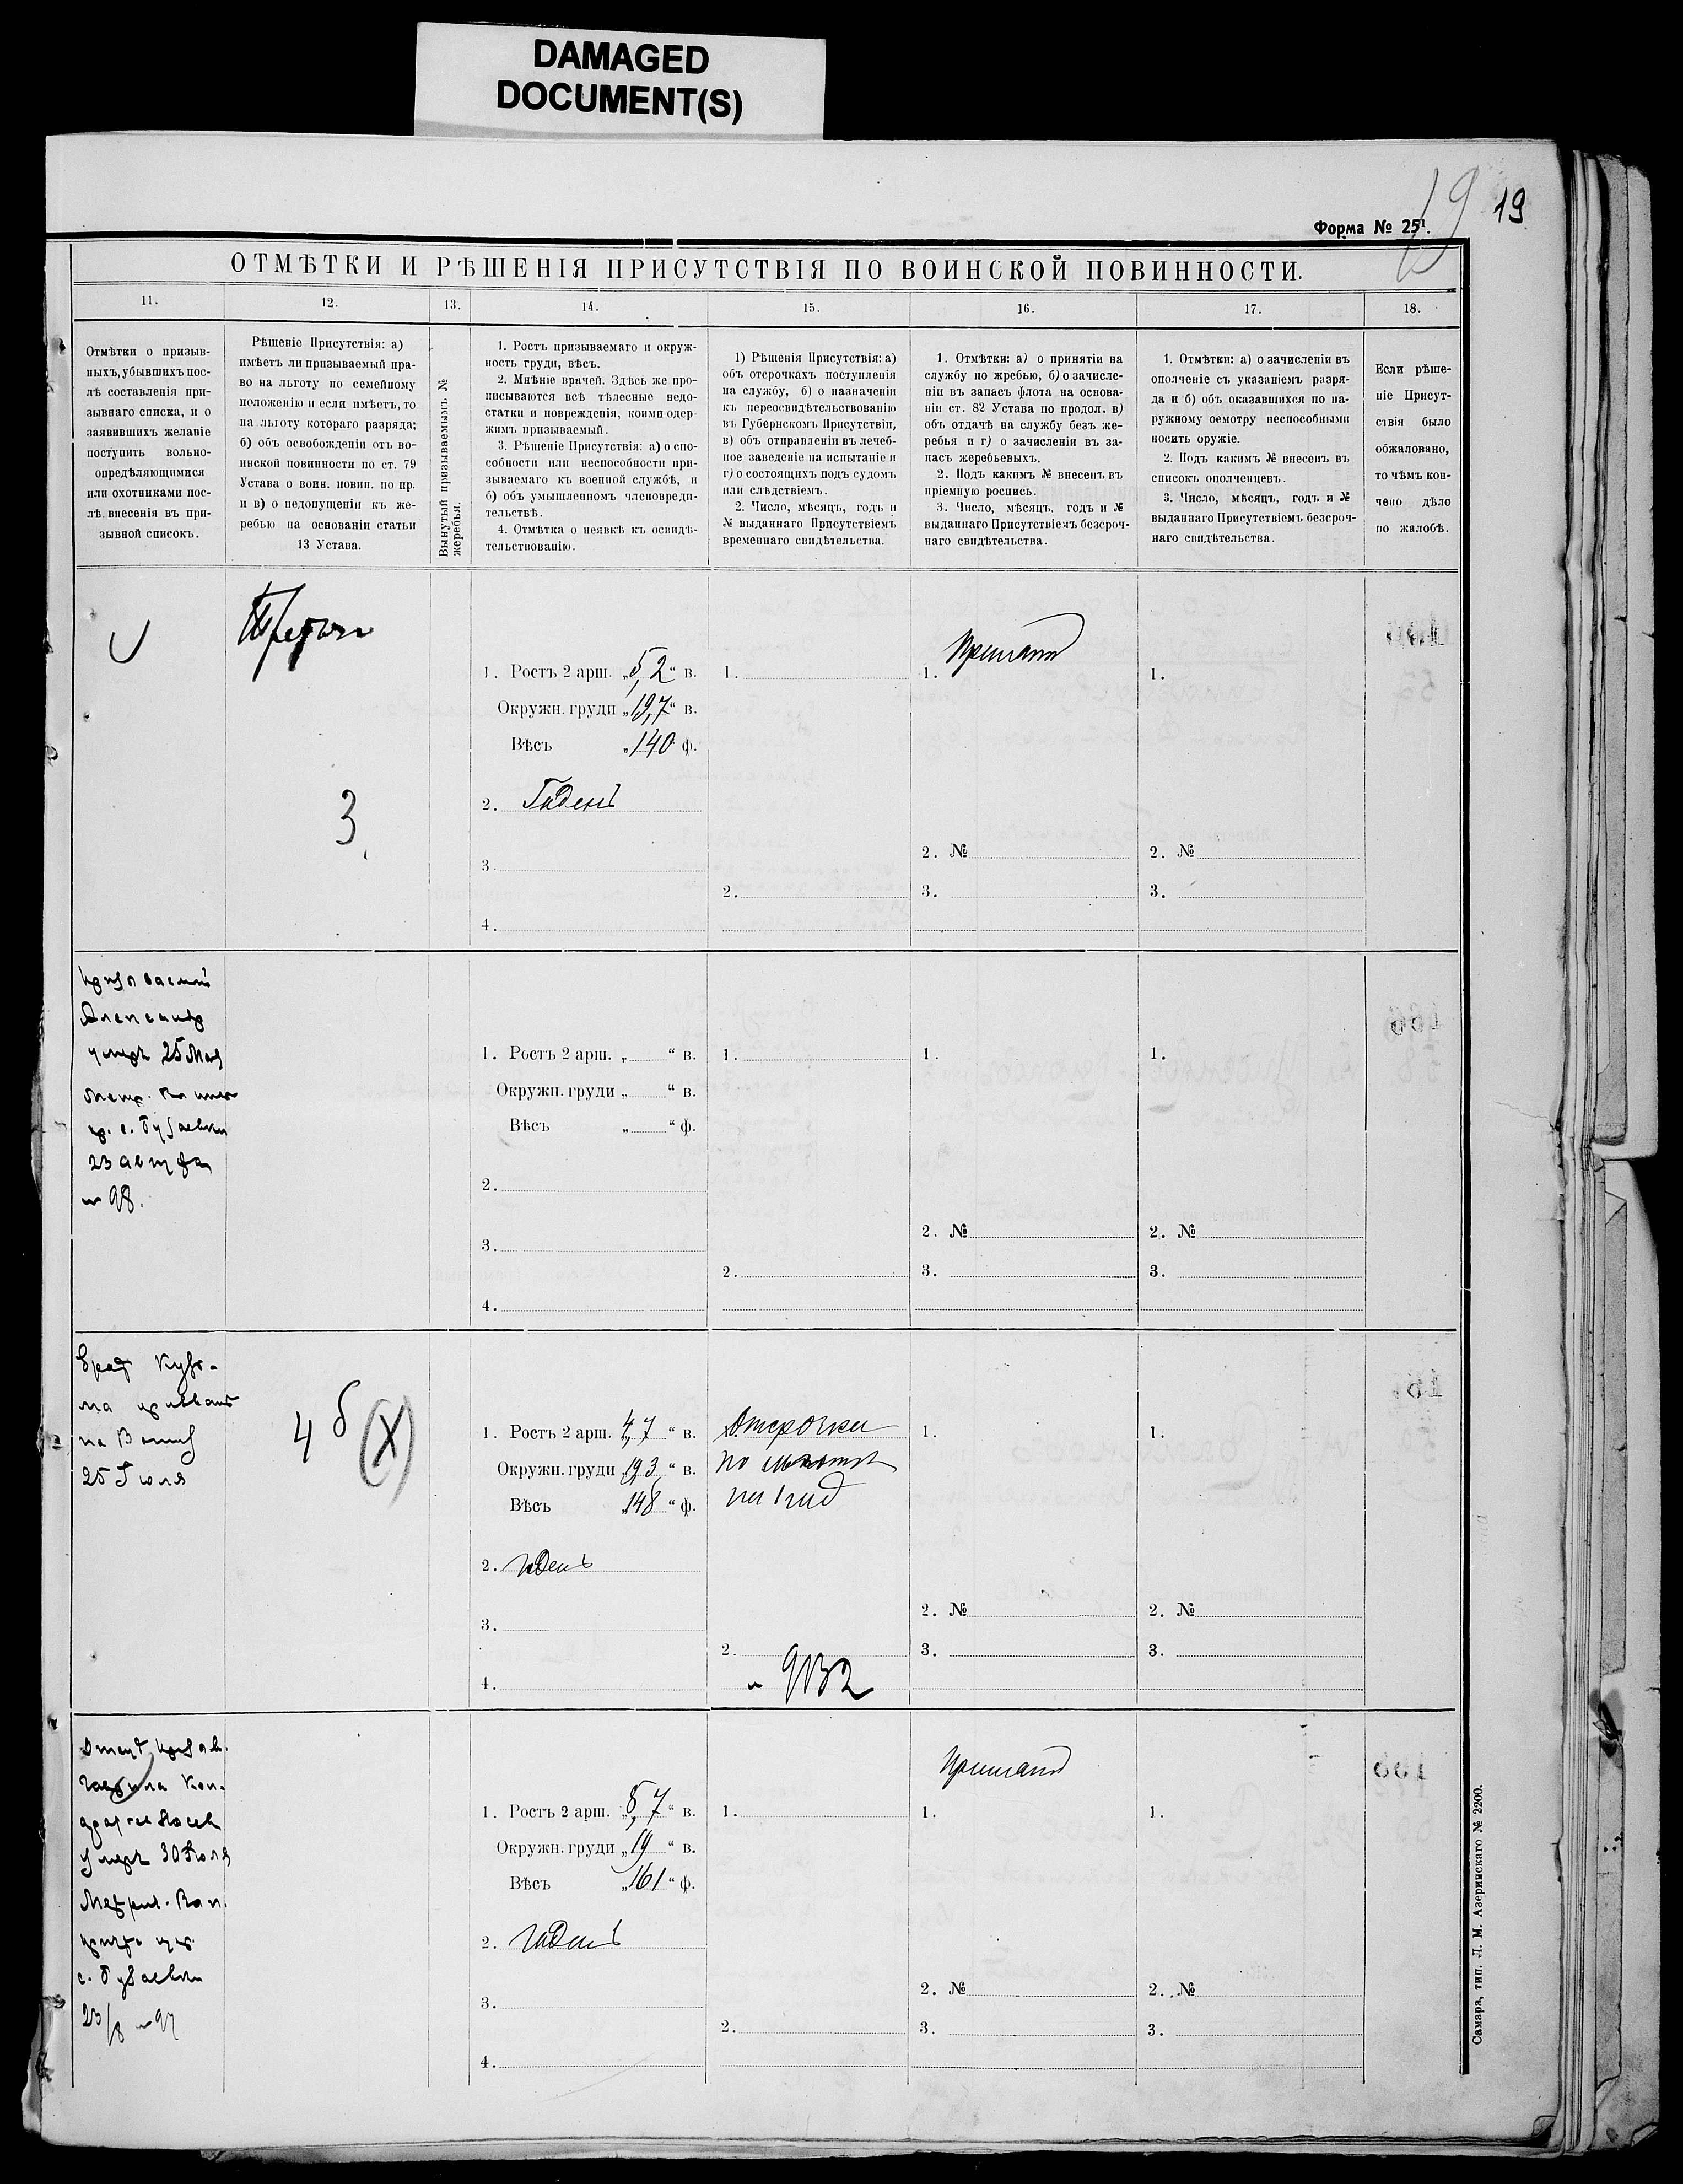 DAMAGED
DOCUMENT(S)
19
19
Форма № 25¹.
ОТМѢТКИ И РѢШЕНІЯ ПРИСУТСТВІЯ ПО ВОИНСКОЙ ПОВИННОСТИ.
11.
12.
13.
14.
15.
16.
17.
18.
Отмѣтки о призыв-
ныхъ, убывшихъ пос-
лѣ составленія при-
зывнаго списка, и о
заявившихъ желаніе
поступить вольно-
опредѣляющимися
или охотниками пос-
лѣ внесенія въ при-
зывной списокъ.
Рѣшеніе Присутствія: а)
имѣетъ ли призываемый пра-
во на льготу по семейному
положенію и если имѣетъ, то
на льготу котораго разряда;
б) объ освобожденіи отъ во-
инской повинности по ст. 79
Устава о воин. повин. по пр.
и в) о недопущеніи къ же-
ребью на основаніи статьи
13 Устава.
Вынутый призываемымъ №
жеребья.
1. Ростъ призываемаго и окруж-
ность груди, вѣсъ.
2. Мнѣніе врачей. Здѣсь же про-
писываются всѣ тѣлесные недо-
статки и поврежденія, коими одер-
жимъ призываемый.
3. Рѣшеніе Присутствія: а) о спо-
собности или неспособности при-
зываемаго къ военной службѣ, и
б) объ умышленномъ членовреди-
тельствѣ.
4. Отмѣтка о неявкѣ къ освидѣ-
тельствованію.
1) Рѣшенія Присутствія: а)
объ отсрочкахъ поступленія
на службу, б) о назначеніи
къ переосвидѣтельствованію
въ Губернскомъ Присутствіи,
в) объ отправленіи въ лечеб-
ное заведеніе на испытаніе и
г) о состоящихъ подъ судомъ
или слѣдствіемъ.
2. Число, мѣсяцъ, годъ и
№ выданнаго Присутствіемъ
временнаго свидѣтельства.
1. Отмѣтки: а) о принятіи на
службу по жребью, б) о зачисле-
ніи въ запасъ флота на основа-
ніи ст. 82 Устава по продол. в)
объ отдачѣ на службу безъ же-
ребья и г) о зачисленіи въ за-
пасъ жеребьевыхъ.
2. Подъ какимъ № внесенъ въ
пріемную роспись.
3. Число, мѣсяцъ, годъ и №
выданнаго Присутствіемъ безсроч-
наго свидѣтельства.
1. Отмѣтки: а) о зачисленіи въ
ополченіе съ указаніемъ разря-
да и б) объ оказавшихся по на-
ружному осмотру неспособными
носить оружіе.
2. Подъ какимъ № внесенъ въ
списокъ ополченцевъ.
3. Число, мѣсяцъ, годъ и №
выданнаго Присутствіемъ безсроч-
наго свидѣтельства.
Если рѣше-
ніе Присут-
ствія было
обжаловано,
то чѣмъ кон-
чено дѣло
по жалобѣ.
3
1. Ростъ 2 арш. „5,2“ в.
Окружн. груди „19,7“ в.
Вѣсъ „140 ф.
2. Годенъ
3.
4.
1.
2.
Принятъ
1.
2. №
3.
1.
2. №
3.
Призываемый
Александр
умеръ 25 Мая
23 августа
№ 98.
1. Ростъ 2 арш. „ “ в.
Окружн. груди „ “ в.
Вѣсъ „ “ ф.
2.
3.
4.
1.
2.
1.
2. №
3.
1.
2. №
3.
Братъ Кузь-
ма
25 Іюля
4 б (X)
1. Ростъ 2 арш. 4,7 “ в.
Окружн. груди „19,3 “ в.
Вѣсъ „148 “ ф.
2. годенъ
3.
4.
Отсрочка
по
на 1 год
2.
№ 9132
1.
2. №
3.
1.
2. №
3.
умеръ 30 Іюля
23/8 № 97
1. Ростъ 2 арш. „8,7“ в.
Окружн. груди „19 “ в.
Вѣсъ „161 “ ф.
2. годенъ
3.
4.
1.
2.
Принятъ
1.
2. №
3.
1.
2. №
3.
Самара, тип. Л. М. Азеринскаго № 2200.